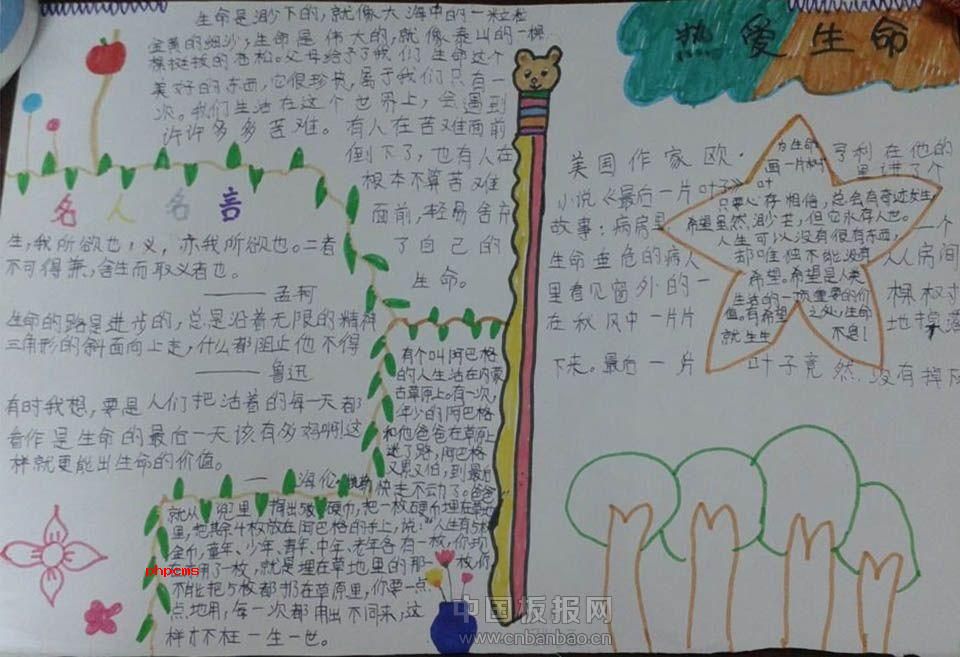 热爱生命
生命是渺下的,就像大海中的一粒粒
金黄的细沙,生命是伟大的,就像泰山的一棵
棵挺拔的苍松。父母给予了我们生命这个
美好的东西,它很珍贵,属于我们只有一
次。我们生活在这个世界上,会遇到
许许多多苦难。有人在苦难面前
倒下了,也有人在
根本不算苦难
面前,轻易舍弃
了自己的
生命。
名人名言
生,我所欲也;义,亦我所欲也。二者
不可得兼,舍生而取义者也。
——孟轲
生命的路是进步的,总是沿着无限的精神
三角形的斜面向上走,什么都阻止他不得
——鲁迅
有时我想,要是人们把活着的每一天都
看作是生命的最后一天该有多好啊!这
样就更能出生命的价值。
——海伦·凯勒
有个叫阿巴格
的人生活在内蒙
古草原上。有一次,
年少的阿巴格
和他爸爸在草原上
迷了路,阿巴格
又累又怕,到最后
快走不动了。爸爸
就从兜里掏出 硬币,把一枚硬币埋在草地
里,把其余4枚放在阿巴格的手上,说:“人生有5枚
金币,童年、少年、青年、中年、老年各有一枚,你现
在 用了一枚,就是埋在草地里的那一枚,你
不能把5枚都扔在草原里,你要一点
点地用,每一次都用出不同来,这
样才不枉一生一世。
美国作家欧·亨利在他的
小说《最后一片叶子》里讲了个
故事:病房里 一个
生命垂危的病人从房间
里看见窗外的一棵树
在秋风中一片片地掉落
下来。最后一片叶子竟然没有掉
为生命
画一片树
叶
只要心存相信,总会有奇迹发生
希望虽然渺茫,但它永存人世。
人生可以没有很有东西,
却唯独不能没有
希望。希望是人类
生活的一项重要的价
值。有希望之处,生命
就生生不息!
phpcms
中国板报网
www.cnbanbao.cn